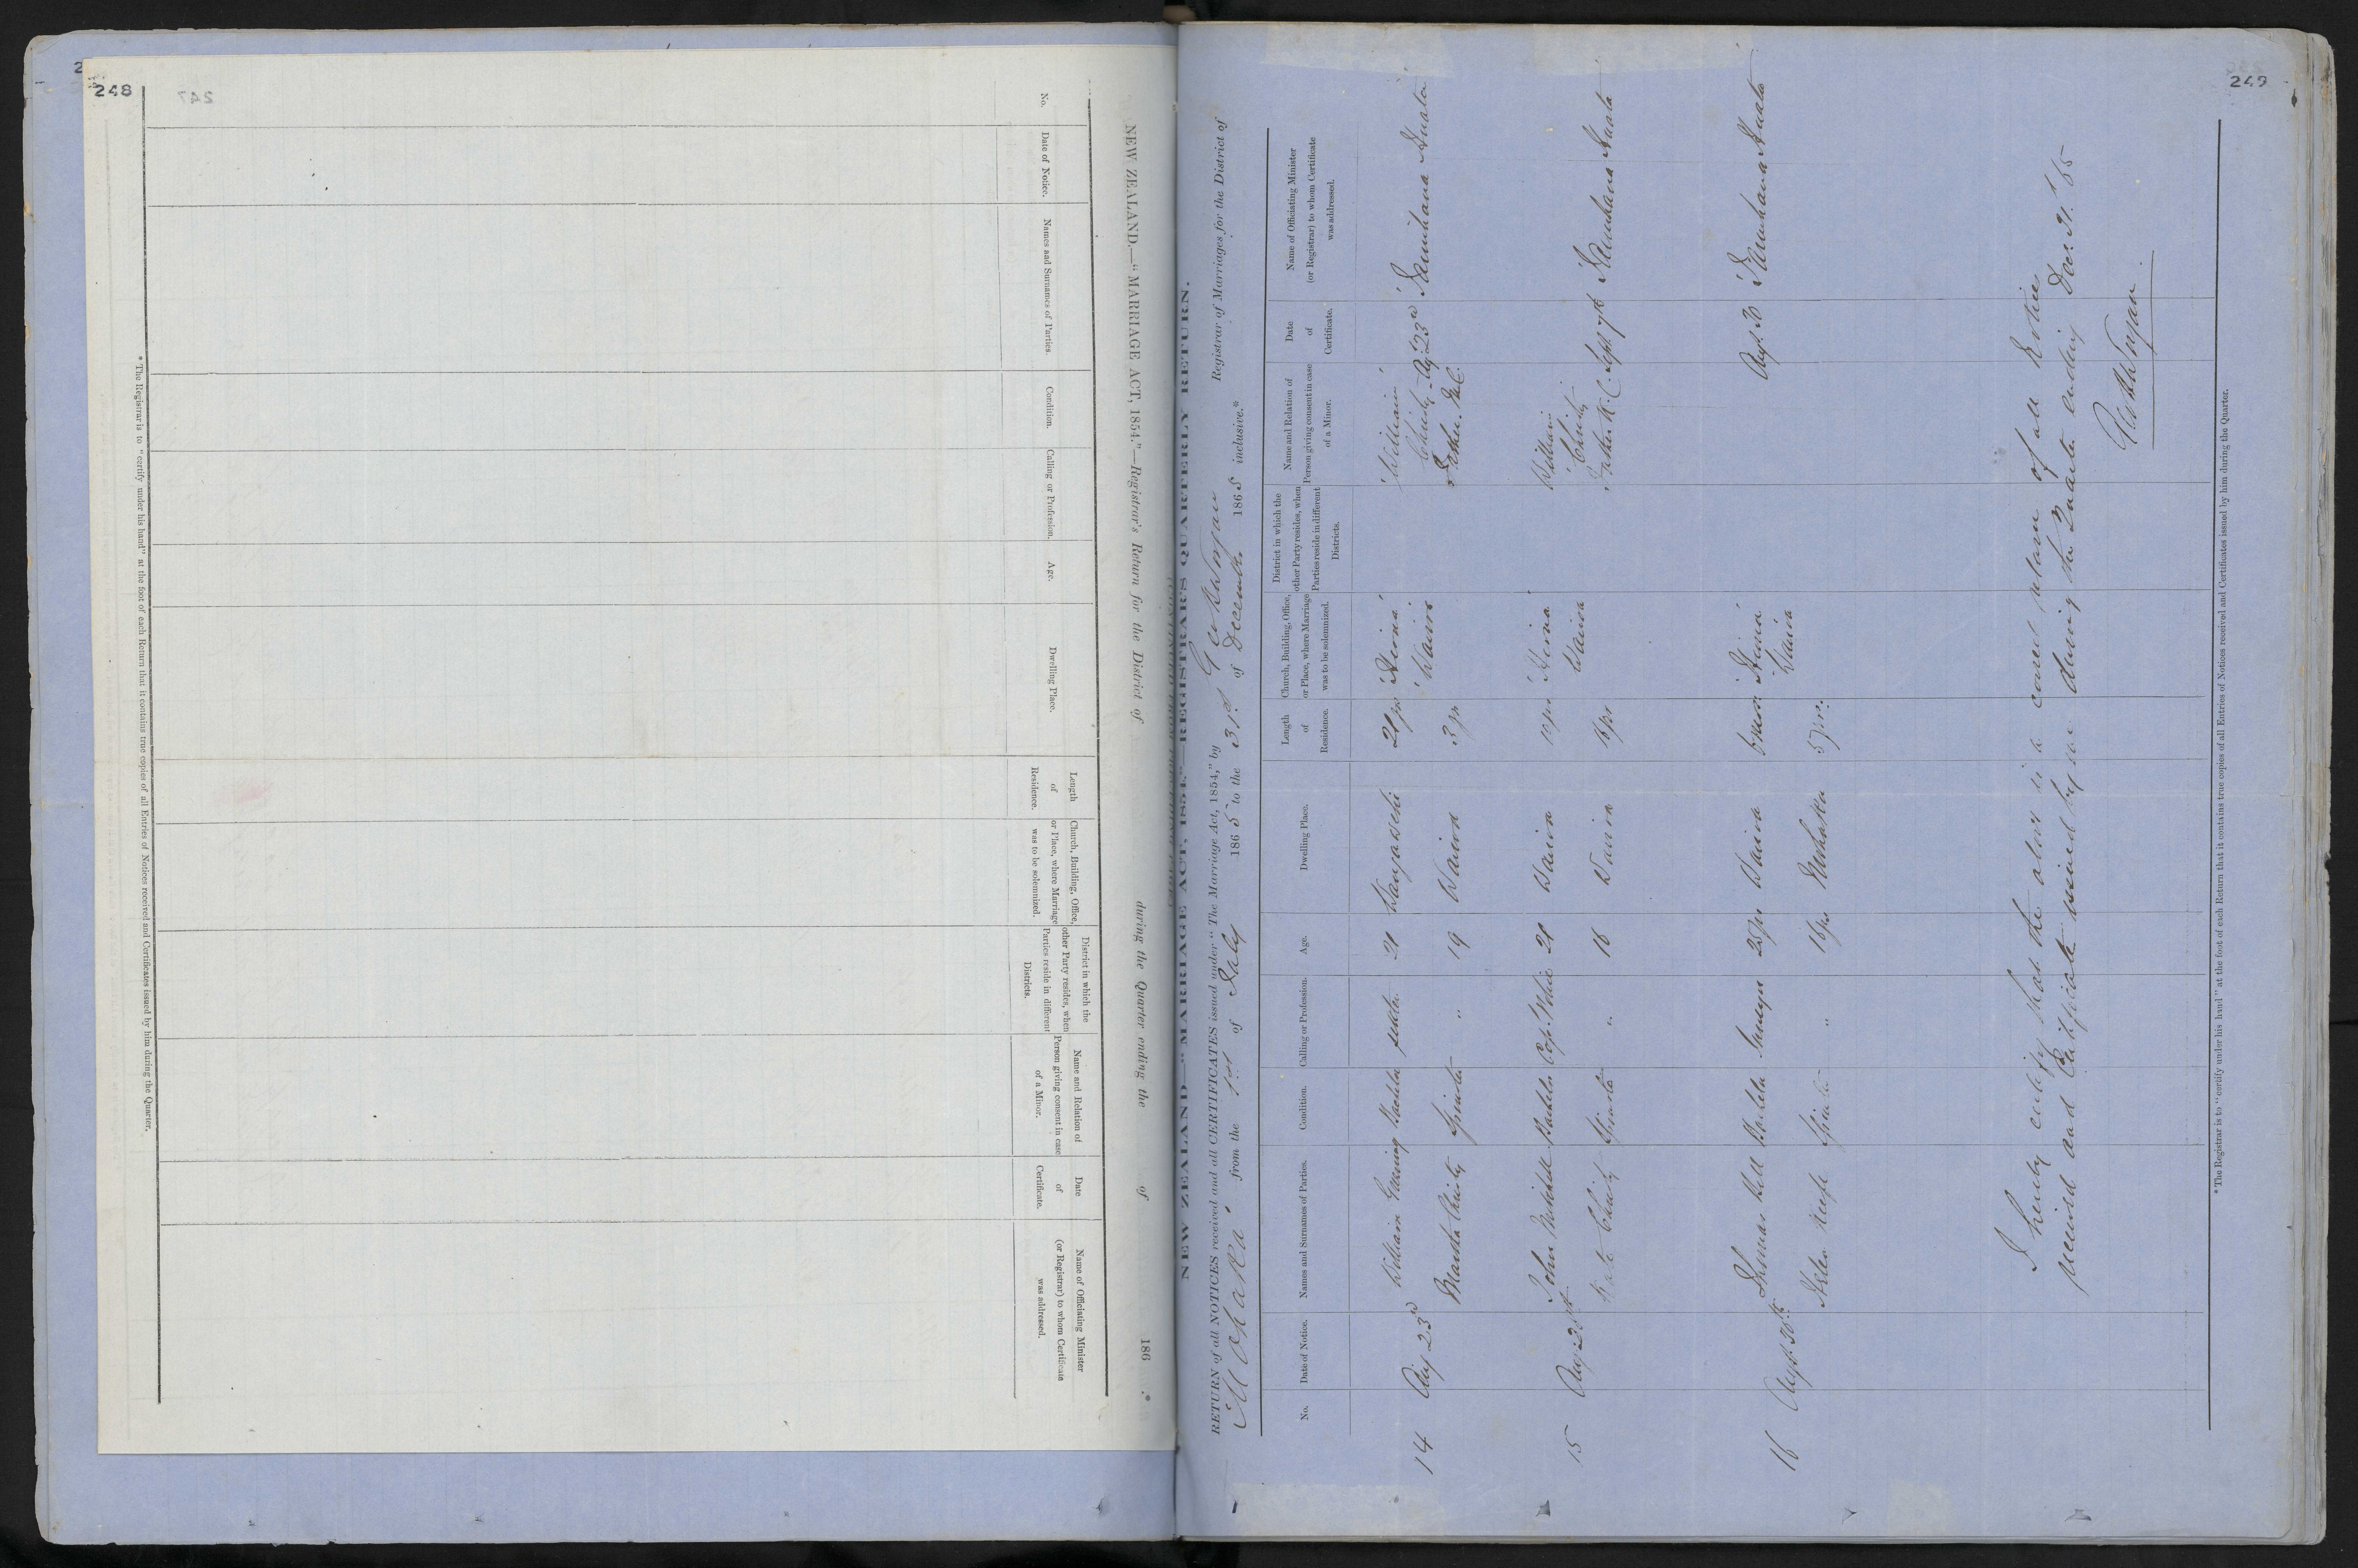 248
NEW ZEALAND.—"MARRIAGE ACT, 1854."—Registrar's Return for the District of during the Quarter ending the of 186 .*
No.
Date of Notice.
Names and Surnames of Parties.
Condition.
Calling or Profession.
Age.
Dwelling Place.
Length
of
Residence.
Church, Building, Office,
or Place, where Marriage
was to be solemnized.
District in which the
other Party resides, when
Parties reside in different
Districts.
Name and Relation of
Person giving consent in case
of a Minor.
Date
of
Certificate.
Name of Officiating Minister
(or Registrar) to whom Certificate
was addressed.
* The Registrar is to "certify under his hand" at the foot of each Return that it contains true copies of all Entries of Notices received and Certificates issued by him during the Quarter.
249
NEW ZEALAND.—"MARRIAGE ACT, 1854."—REGISTRAR'S QUARTERLY RETURN.
RETURN of all NOTICES received and all CERTIFICATES issued under "The Marriage Act, 1854," by Registrar of Marriages for the District of
Mohaka from the 1st of July 1865 to the 31st of December 1865 inclusive.*
No.
Date of Notice.
Names and Surnames of Parties.
Condition.
Calling or Profession.
Age.
Dwelling Place.
Length
of
Residence.
Church, Building, Office,
or Place, where Marriage
was to be solemnized.
District in which the
other Party resides, when
Parties reside in different
Districts.
Name and Relation of
Person giving consent in case
of a Minor.
Date
of
Certificate.
Name of Officiating Minister
(or Registrar) to whom Certificate
was addressed.
William Bachelor 21 William
14 Aug 23rd Christy Aug 23rd
Martha Christy Spinster " 19 Wairoa 3 yrs Wairoa Father
John Mitchell Bachelor 21 Wairoa William
15 Christy Sept 7th
Kate Christy Spinster " 16 Wairoa 16 yrs Wairoa Father
Thomas Bachelor Wairoa Aug. 30
16 Augt. 30th
Helen Spinster " 16 yrs Mohaka 5 yrs. Wairoa
I hereby certify that the above is a correct return of all Notices
received and Certificates issued by me during the Quarter ending Dec. 31. /65
* The Registrar is to "certify under his hand" at the foot of each Return that it contains true copies of all Entries of Notices received and Certificates issued by him during the Quarter.